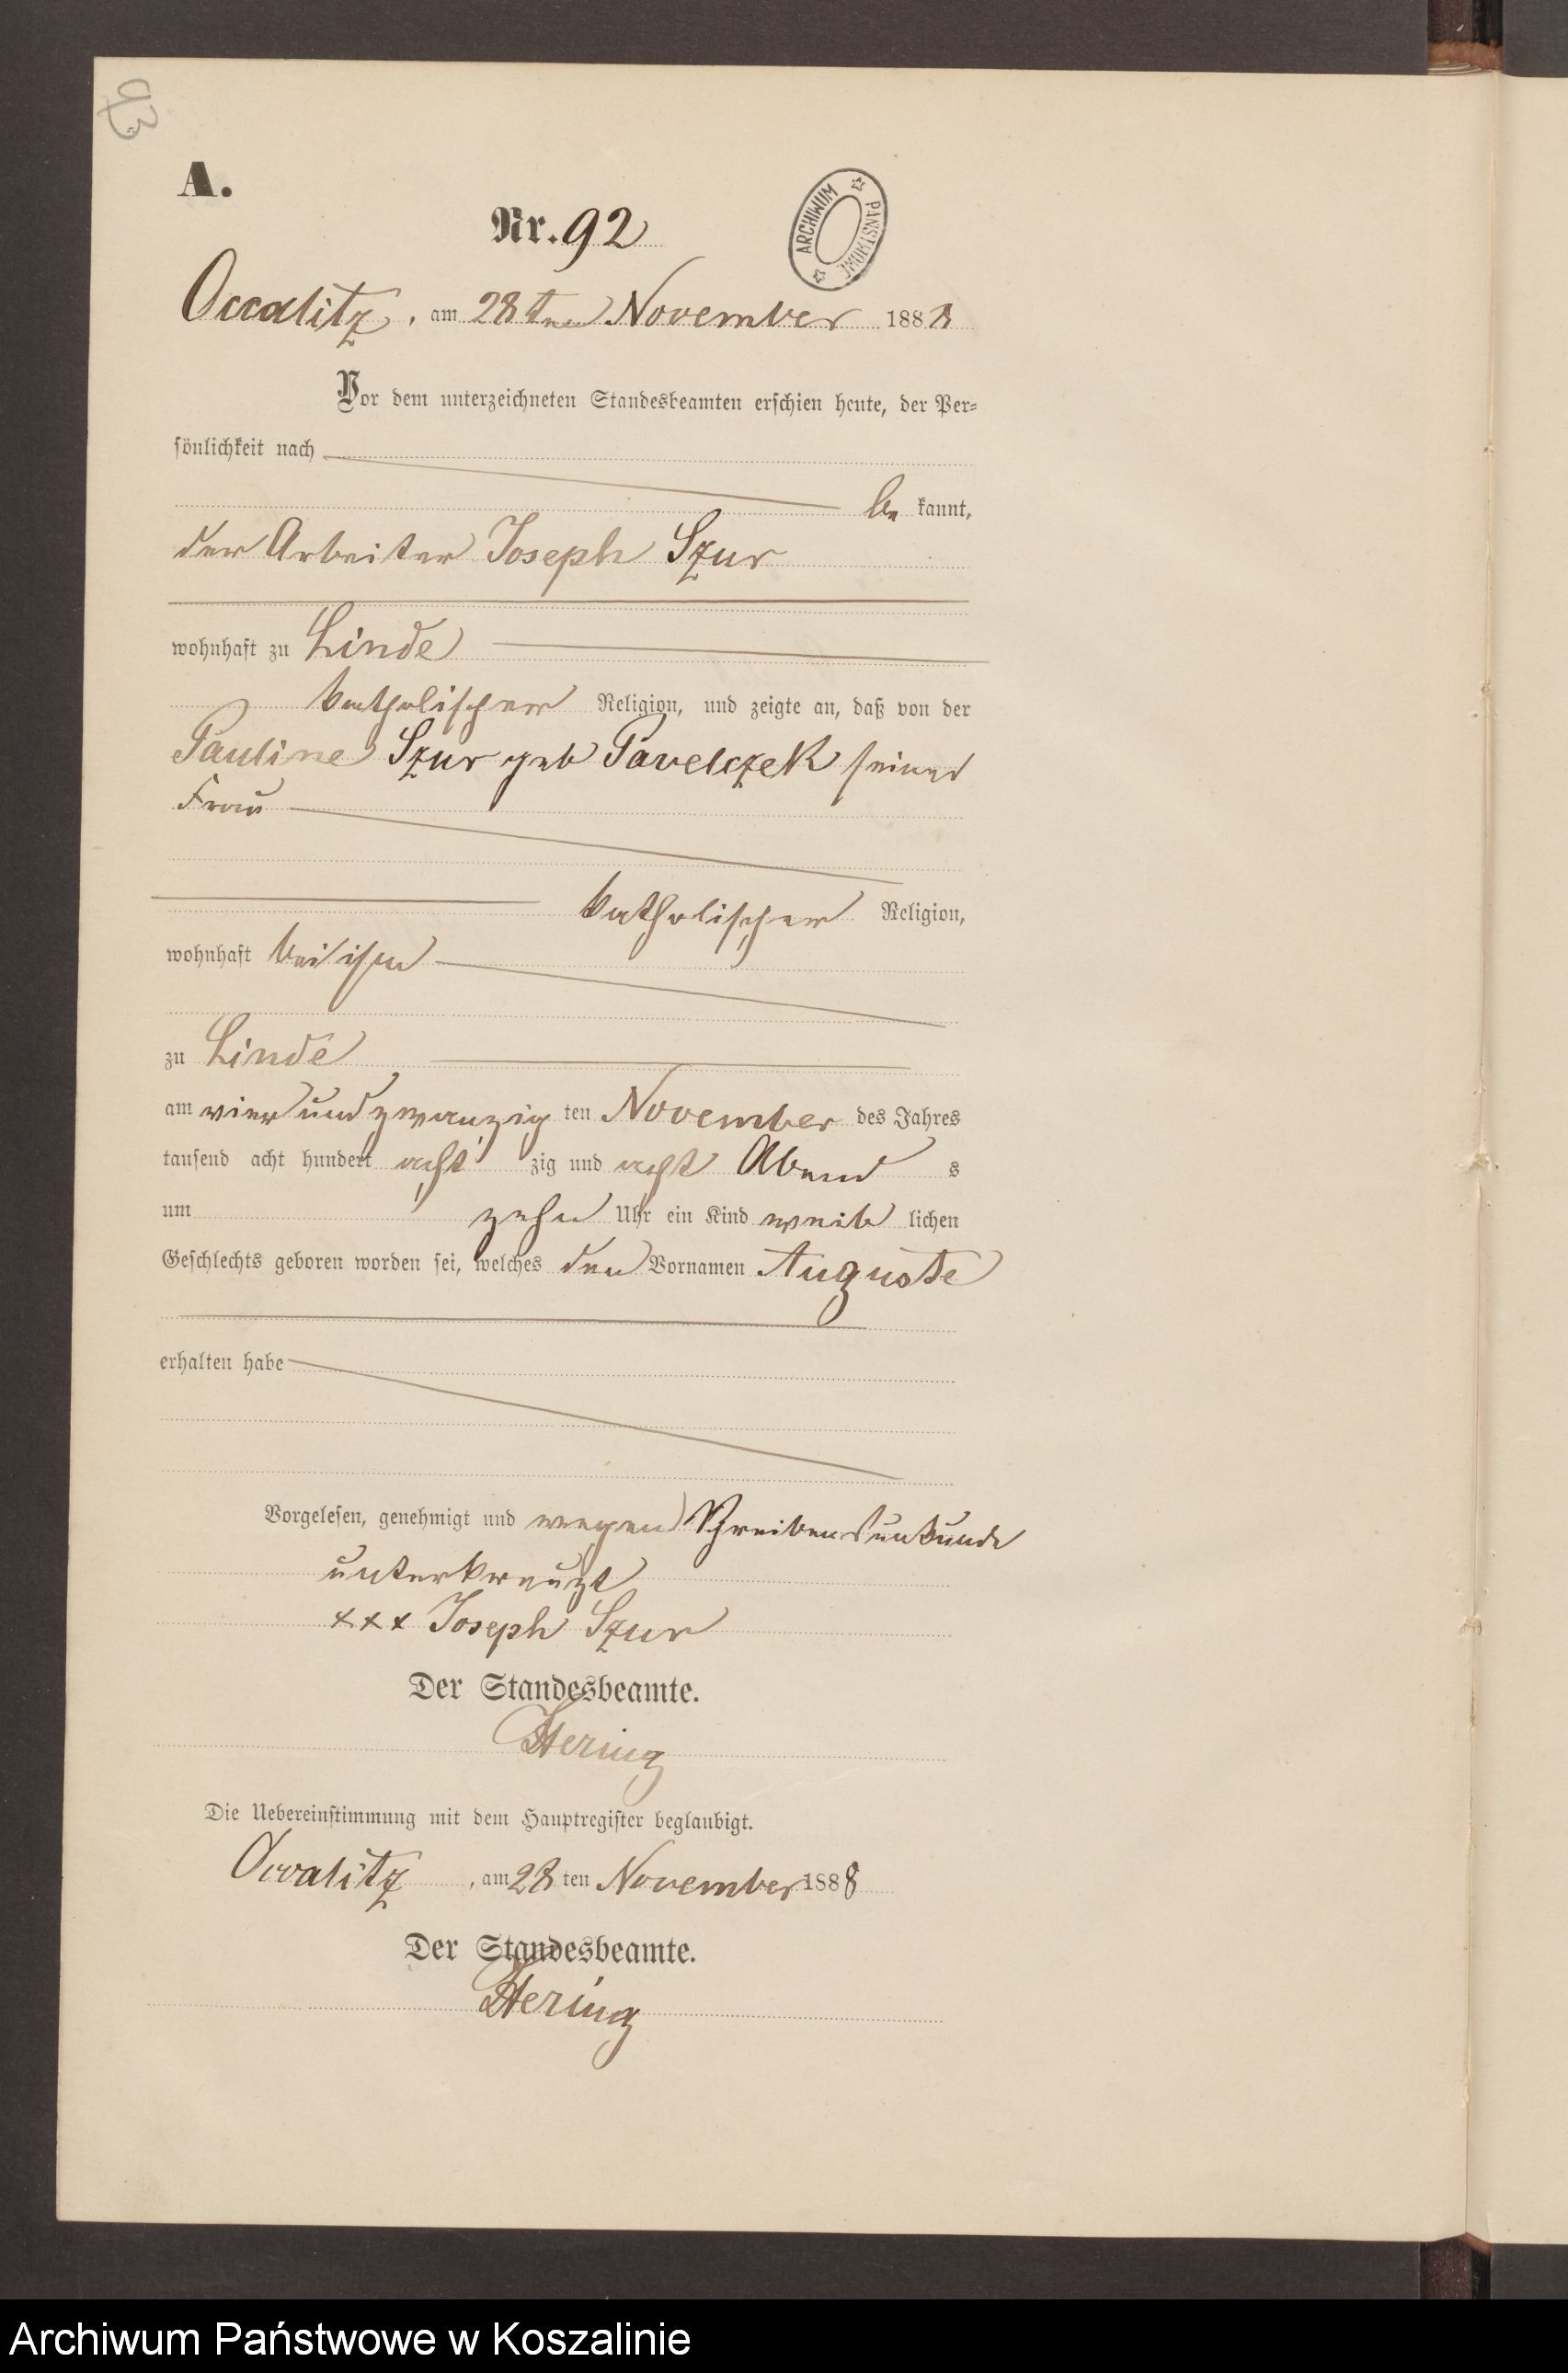 93
A.
Nr. 92
ARCHIWUM PAŃSTWOWE
Occalitz, am 28ten November 1888
Vor dem unterzeichneten Standesbeamten erschien heute, der Per-
sönlichkeit nach
be kannt,
der Arbeiter Joseph Szur
wohnhaft zu Linde
katholischer Religion, und zeigte an, daß von der
Pauline Szur geb Pavelczek seiner
Frau
katholischer Religion,
wohnhaft bei ihm
zu Linde
am vier und zwanzig ten November des Jahres
tausend acht hundert acht zig und acht Abend s
um zehn Uhr ein Kind weib lichen
Geschlechts geboren worden sei, welches den Vornamen Auguste
erhalten habe
Vorgelesen, genehmigt und wegen Schreibensunkunde
unterkreuzt
xxx Joseph Szur
Der Standesbeamte.
Hering
Die Uebereinstimmung mit dem Hauptregister beglaubigt.
Occalitz, am 28 ten November 1888
Der Standesbeamte.
Hering
Archiwum Państwowe w Koszalinie